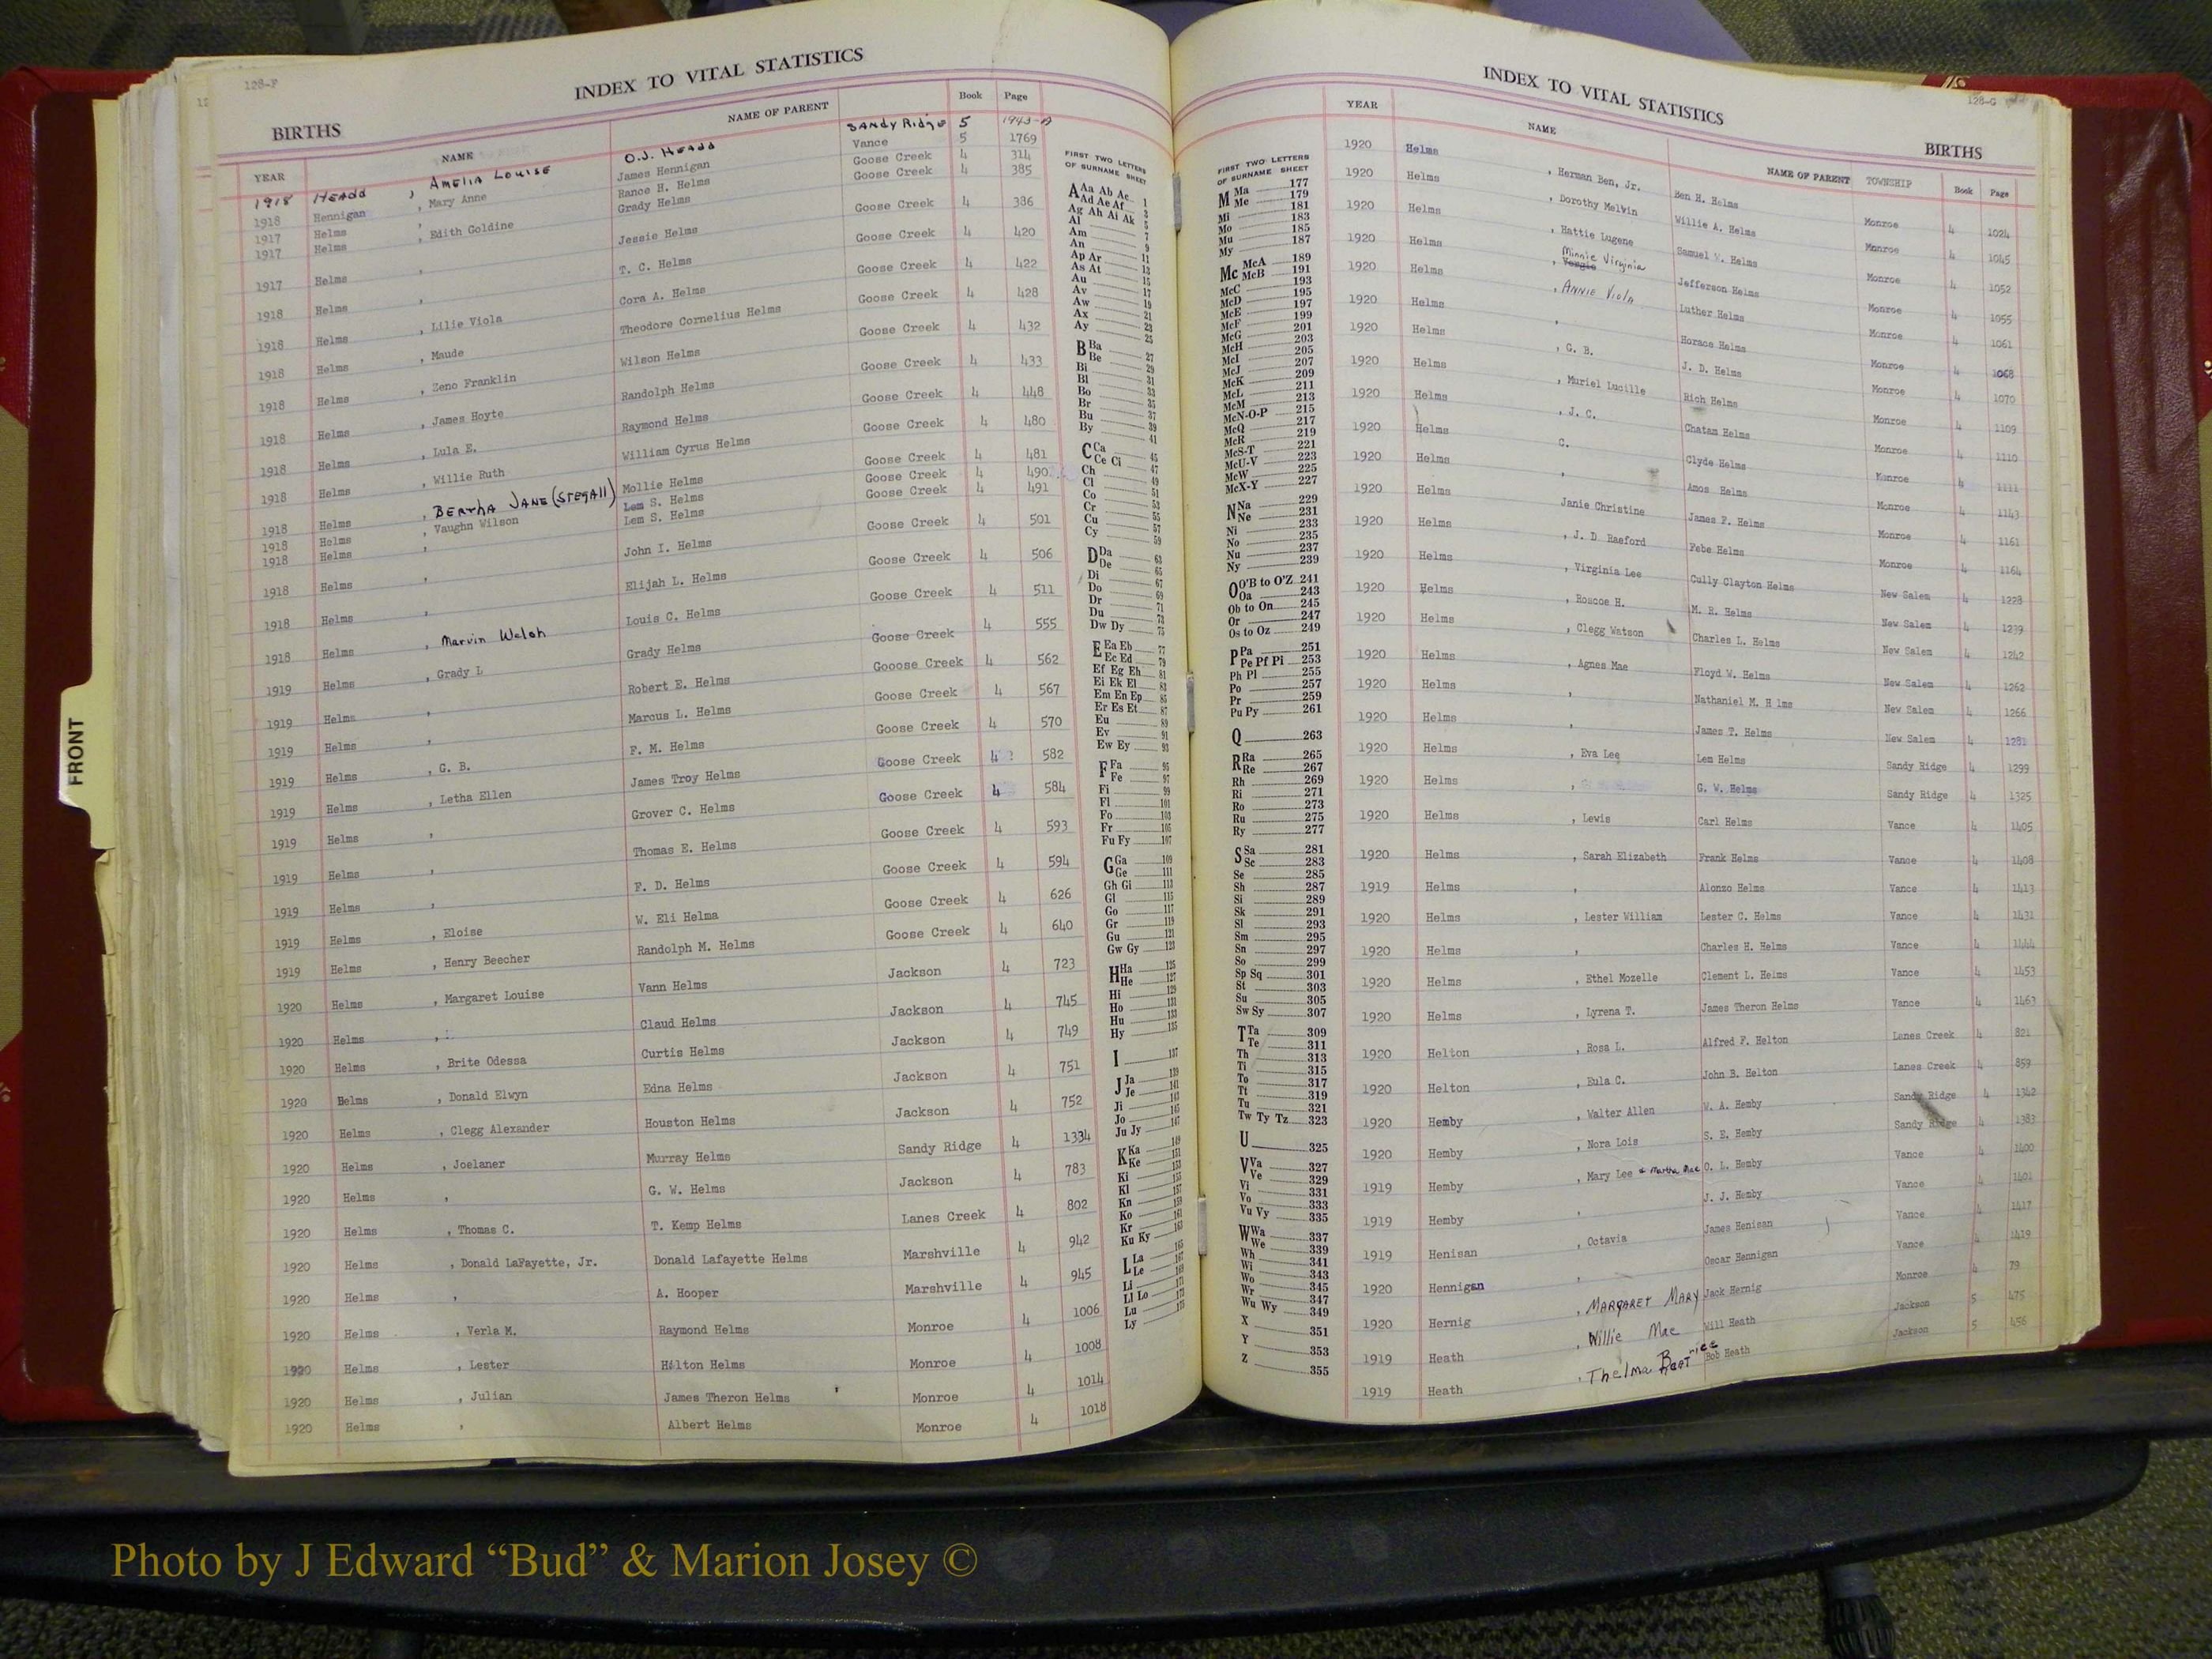 128-F
INDEX TO VITAL STATISTICS
BIRTHS
YEAR NAME NAME OF PARENT Book Page
1918 HEADD , AMELIA LOUISE O.J. HEADD SANDY Ridge 5 1943-A
1918 Hennigan , Mary Anne James Hennigan Vance 5 1769
1917 Helms , Rance H. Helms Goose Creek 4 314
1917 Helms , Edith Goldine Grady Helms Goose Creek 4 385
1917 Helms , Jessie Helms Goose Creek 4 386
1918 Helms , T. C. Helms Goose Creek 4 420
1918 Helms , Lilie Viola Cora A. Helms Goose Creek 4 422
1918 Helms , Maude Theodore Cornelius Helms Goose Creek 4 428
1918 Helms , Zeno Franklin Wilson Helms Goose Creek 4 432
1918 Helms , James Hoyte Randolph Helms Goose Creek 4 433
1918 Helms , Lula E. Raymond Helms Goose Creek 4 448
1918 Helms , Willie Ruth William Cyrus Helms Goose Creek 4 480
1918 Helms , BERtHA JANE (StEGAll) Mollie Helms Goose Creek 4 481
1918 Helms , Vaughn Wilson Lem S. Helms Goose Creek 4 490
1918 Helms , Lem S. Helms Goose Creek 4 491
1918 Helms , John I. Helms Goose Creek 4 501
1918 Helms , Elijah L. Helms Goose Creek 4 506
1918 Helms , Marvin Welsh Louis C. Helms Goose Creek 4 511
1919 Helms , Grady L Grady Helms Goose Creek 4 555
1919 Helms , Robert E. Helms Gooose Creek 4 562
1919 Helms , Marcus L. Helms Goose Creek 4 567
1919 Helms , G. B. F. M. Helms Goose Creek 4 570
1919 Helms , Letha Ellen James Troy Helms Goose Creek 4 582
1919 Helms , Grover C. Helms Goose Creek 4 584
1919 Helms , Thomas E. Helms Goose Creek 4 593
1919 Helms , F. D. Helms Goose Creek 4 594
1919 Helms , Eloise W. Eli Helma Goose Creek 4 626
1919 Helms , Henry Beecher Randolph M. Helms Goose Creek 4 640
1920 Helms , Margaret Louise Vann Helms Jackson 4 723
1920 Helms , Claud Helms Jackson 4 745
1920 Helms , Brite Odessa Curtis Helms Jackson 4 749
1920 Helms , Donald Elwyn Edna Helms Jackson 4 751
1920 Helms , Clegg Alexander Houston Helms Jackson 4 752
1920 Helms , Joelaner Murray Helms Sandy Ridge 4 1334
1920 Helms , G. W. Helms Jackson 4 783
1920 Helms , Thomas C. T. Kemp Helms Lanes Creek 4 802
1920 Helms , Donald LaFayette, Jr. Donald Lafayette Helms Marshville 4 942
1920 Helms , A. Hooper Marshville 4 945
1920 Helms , Verla M. Raymond Helms Monroe 4 1006
1920 Helms , Lester Hilton Helms Monroe 4 1008
1920 Helms , Julian James Theron Helms Monroe 4 1014
1920 Helms , Albert Helms Monroe 4 1018
FIRST TWO LETTERS
OF SURNAME SHEET
A Aa Ab Ac 1
Ad Ae Af 3
Ag Ah Ai Ak 5
Al 7
Am 9
An 11
Ap Ar 13
As At 15
Au 17
Av 19
Aw 21
Ax 23
Ay 25
B Ba 27
Be 29
Bi 31
Bl 33
Bo 35
Br 37
Bu 39
By 41
C Ca 45
Ce Ci 47
Ch 49
Cl 51
Co 53
Cr 55
Cu 57
Cy 59
D Da 63
De 65
Di 67
Do 69
Dr 71
Du 73
Dw Dy 75
E Ea Eb 77
Ec Ed 79
Ef Eg Eh 81
Ei Ek El 83
Em En Ep 85
Er Es Et 87
Eu 89
Ev 91
Ew Ey 93
F Fa 95
Fe 97
Fi 99
Fl 101
Fo 103
Fr 105
Fu Fy 107
G Ga 109
Ge 111
Gh Gi 113
Gl 115
Go 117
Gr 119
Gu 121
Gw Gy 123
H Ha 125
He 127
Hi 129
Ho 131
Hu 133
Hy 135
I 137
J Ja 139
Je 141
Ji 143
Jo 145
Ju Jy 147
K Ka 149
Ke 151
Ki 153
Kl 155
Kn 157
Ko 159
Kr 161
Ku Ky 163
L La 165
Le 167
Li 169
Ll Lo 171
Lu 173
Ly 175
FRONT
128-G
INDEX TO VITAL STATISTICS
BIRTHS
FIRST TWO LETTERS
OF SURNAME SHEET
M Ma 177
Me 179
Mi 181
Mo 183
Mu 185
My 187
Mc McA 189
McB 191
McC 193
McD 195
McE 197
McF 199
McG 201
McH 203
McI 205
McJ 207
McK 209
McL 211
McM 213
McN-O-P 215
McQ 217
McR 219
McS-T 221
McU-V 223
McW 225
McX-Y 227
N Na 229
Ne 231
Ni 233
No 235
Nu 237
Ny 239
O O'B to O'Z 241
Oa 243
Ob to On 245
Or 247
Os to Oz 249
P Pa 251
Pe Pf Pi 253
Ph Pl 255
Po 257
Pr 259
Pu Py 261
Q 263
R Ra 265
Re 267
Rh 269
Ri 271
Ro 273
Ru 275
Ry 277
S Sa 281
Sc 283
Se 285
Sh 287
Si 289
Sk 291
Sl 293
Sm 295
Sn 297
So 299
Sp Sq 301
St 303
Su 305
Sw Sy 307
T Ta 309
Te 311
Th 313
Ti 315
To 317
Tt 319
Tu 321
Tw Ty Tz 323
U 325
V Va 327
Ve 329
Vi 331
Vo 333
Vu Vy 335
W Wa 337
We 339
Wh 341
Wi 343
Wo 345
Wr 347
Wu Wy 349
X 351
Y 353
Z 355
YEAR NAME NAME OF PARENT TOWNSHIP Book Page
1920 Helms , Herman Ben, Jr. Ben H. Helms Monroe 4 1024
1920 Helms , Dorothy Melvin Willie A. Helms Monroe 4 1045
1920 Helms , Hattie Lugene Samuel W. Helms Monroe 4 1052
1920 Helms , Minnie Virginia Jefferson Helms Monroe 4 1055
1920 Helms , ANNIE Viola Luther Helms Monroe 4 1061
1920 Helms , Horace Helms Monroe 4 1068
1920 Helms , G. B. J. D. Helms Monroe 4 1070
1920 Helms , Muriel Lucille Rich Helms Monroe 4 1109
1920 Helms , J. C. Chatam Helms Monroe 4 1110
1920 Helms C. Clyde Helms Monroe 4 1111
1920 Helms , Amos Helms Monroe 4 1143
1920 Helms Janie Christine James F. Helms Monroe 4 1161
1920 Helms , J. D Raeford Febe Helms Monroe 4 1164
1920 Helms , Virginia Lee Cully Clayton Helms New Salem 4 1228
1920 Helms , Roscoe H. M. R. Helms New Salem 4 1239
1920 Helms , Clegg Watson Charles L. Helms New Salem 4 1242
1920 Helms , Agnes Mae Floyd W. Helms New Salem 4 1262
1920 Helms , Nathaniel M. H lms New Salem 4 1266
1920 Helms , James T. Helms New Salem 4 1281
1920 Helms , Eva Lee Lem Helms Sandy Ridge 4 1299
1920 Helms , G. W. Helms Sandy Ridge 4 1325
1920 Helms , Lewis Carl Helms Vance 4 1405
1920 Helms , Sarah Elizabeth Frank Helms Vance 4 1408
1919 Helms , Alonzo Helms Vance 4 1413
1920 Helms , Lester William Lester C. Helms Vance 4 1431
1920 Helms , Charles H. Helms Vance 4 1444
1920 Helms , Ethel Mozelle Clement L. Helms Vance 4 1453
1920 Helms , Lyrena T. James Theron Helms Vance 4 1463
1920 Helton , Rosa L. Alfred F. Helton Lanes Creek 4 821
1920 Helton , Eula C. John B. Helton Lanes Creek 4 859
1920 Hemby , Walter Allen W. A. Hemby Sandy Ridge 4 1342
1920 Hemby , Nora Lois S. E. Hemby Sandy Ridge 4 1383
1919 Hemby , Mary Lee & Martha Mae O. L. Hemby Vance 4 1400
1919 Hemby , J. J. Hemby Vance 4 1401
1919 Henisan , Octavia James Henisan Vance 4 1417
1920 Hennigan , Oscar Hennigan Vance 4 1419
1920 Hernig , MARGARET MARY Jack Hernig Monroe 4 79
1919 Heath , Willie Mae Will Heath Jackson 5 475
1919 Heath , Thelma Beatrice Bob Heath Jackson 5 456
Photo by J Edward “Bud” & Marion Josey ©